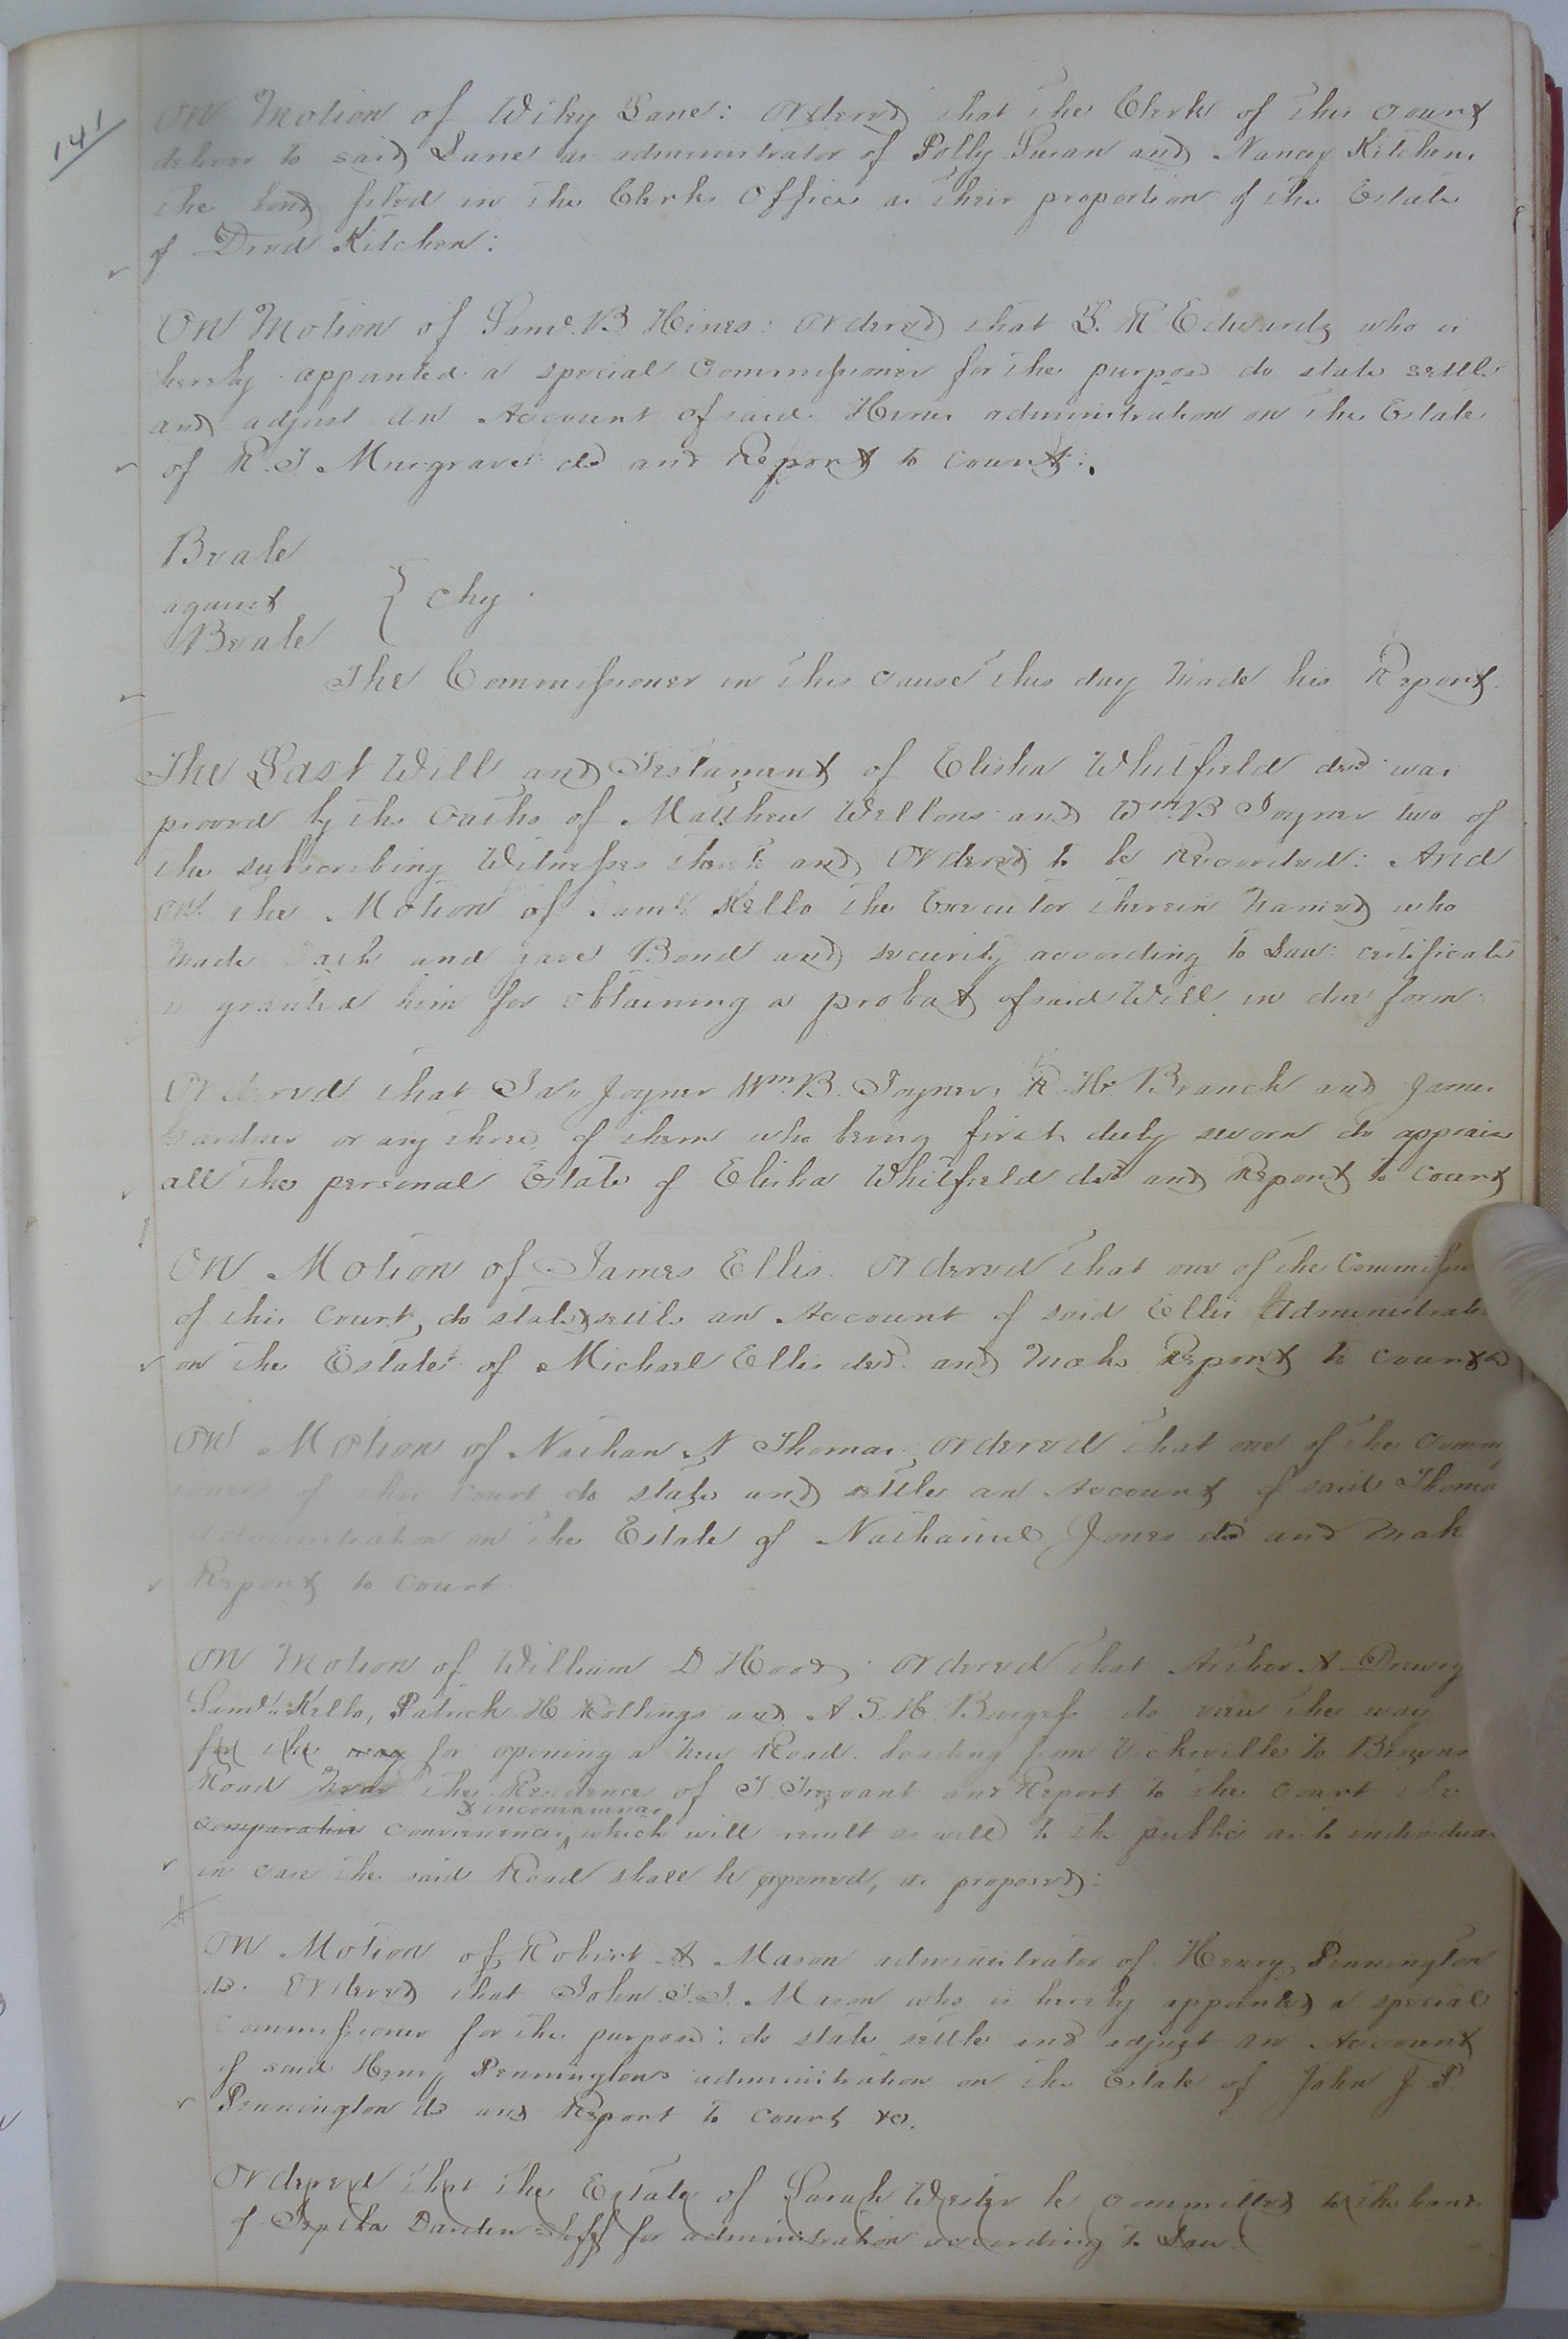 141
On Motion of Wiley Lane: Ordered that the Clerk of this Court
deliver to said Lane as administrator of Polly Susan and Nancy Kitchen,
the bond filed in the Clerks Office as their proportion of the Estate
of Dred Kitchen:
On Motion of Saml. B Hines: Ordered that L. R Edwards who is
hereby appointed a special Commissioner for the purpose do state settle
and adjust an Account of said Hines administration on the Estate
of R. J Musgrave dcd and Report to court:
Beale
against
Beale
} Chy
The Commissioner in this cause this day made his Report.
The Last Will and Testament of Elisha Whitfield decd was
proved by the oaths of Matthew Wellons and Wm. B Joyner two of
the subscribing Witnesses thereto and Ordered to be Recorded: And
on the Motion of Saml. Kello the Executor therein named who
made oath and gave Bond and security according to Law: certificate
is granted him for obtaining a probat of said Will in due form:
Ordered that Jas. Joyner Wm. B. Joyner, R. H. Branch and James
Gardner or any three of them who being first duly sworn do appraise
all the personal Estate of Elisha Whitfield decd and Report to Court
On Motion of James Ellis. Ordered that one of the Commissio
of this Court, do state & settle an Account of said Ellis Administrati
on the Estate of Michael Ellis decd. and make Report to court &c
On Motion of Nathan N Thomas, ordered that one of the Commi
ioners of this Court do state and settle an Account of said Thoma
administration on the Estate of Nathaniel Jones dcd and Mak
Report to Court.
On Motion of William D Hood; Ordered that Archer A Drewry
Saml. Kello, Patrick H Rollings and A. S. H. Burgess do view the way
for the way for opening a new Road. leading from Vicksville to Browns
Road near the Residence of J. Trezvant and Report to the Court the
comparative conveniences & inconveniences, which will result as well to the public as to individua
in case the said Road shall be oppened, as proposed:
On Motion of Robert A Mason administrator of Henry Pennington
dcd. Ordered that John T. J. Mason who is hereby appointed a special
Commissioner for the purpose: do state settle and adjust an Account
of said Henry Penningtons administration on the Estate of John J P.
Pennington dcd and Report to court &c.
Ordered that the Estate of Sarah Wester be committed to the hands
of Darden shff for administration according to Law.